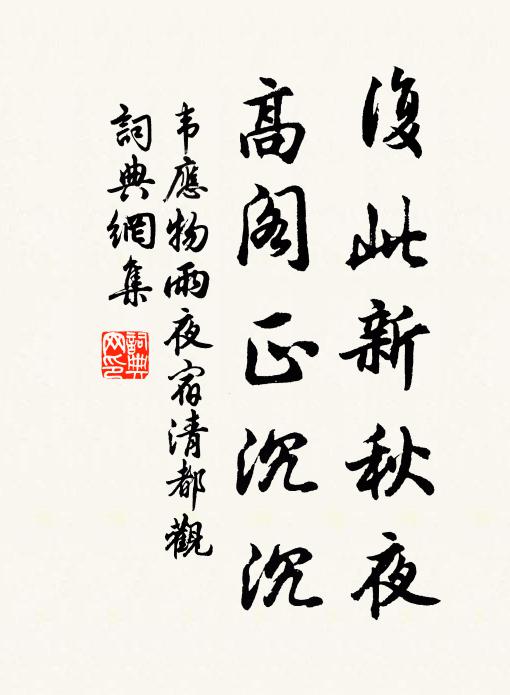 復此新秋夜
高阁正沉沉
韦應物雨夜宿清都觀
詞典網集
詞典网印